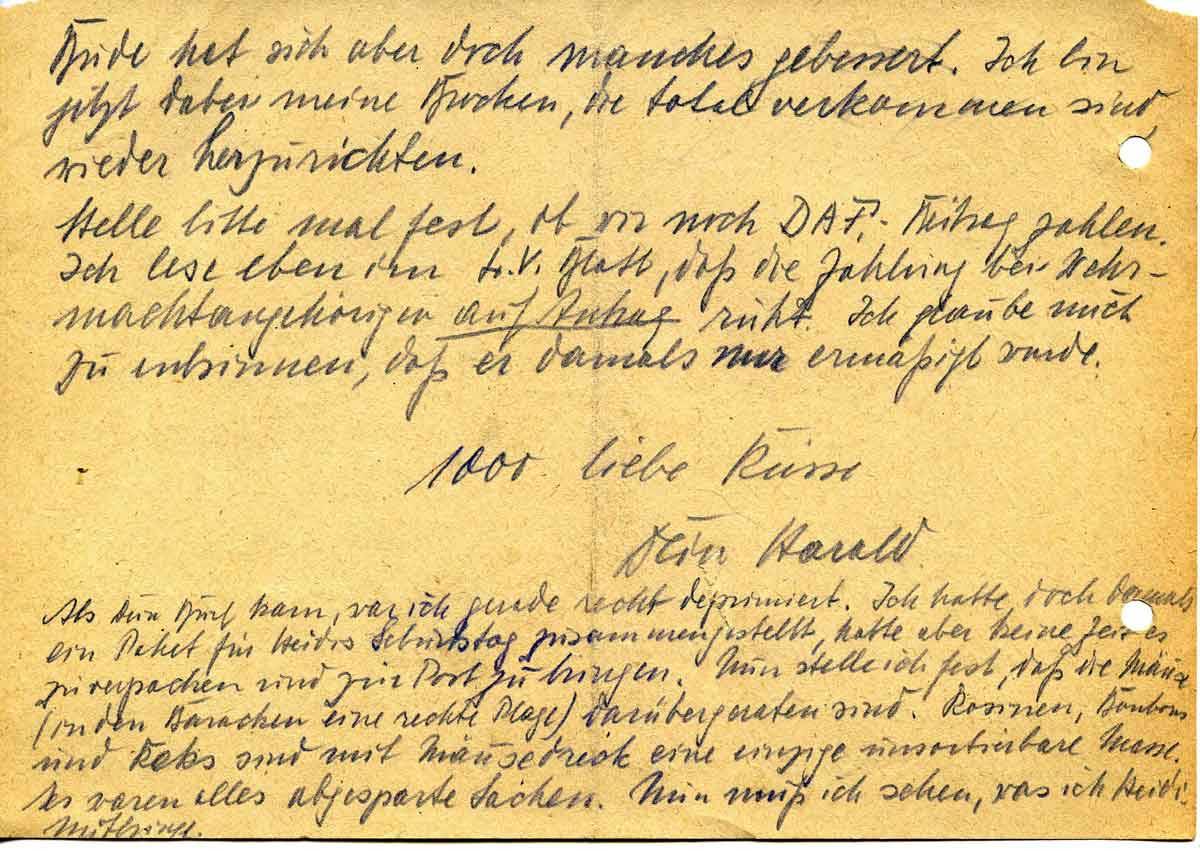 Bude hat sich aber doch manches gebessert. Ich bin
jetzt dabei meine Brocken, die total verkommen sind,
wieder herzurichten.
Stelle bitte mal fest, ob wir noch DAF.-Beitrag zahlen.
Ich lese eben im Blatt, daß die Zahlung bei Wehr-
machtangehörigen auf Antrag ruht. Ich glaube mich
zu entsinnen, daß er damals nur ermäßigt wurde.
1000 liebe Küsse
Dein Harald
Als Dein Brief kam, war ich gerade recht deprimiert. Ich hatte doch damals
ein Paket für Heidis Geburtstag zusammengestellt, hatte aber keine Zeit es
zu verpacken und zur Post zu bringen. Nun stelle ich fest, daß die Mäuse
(in den Baracken eine rechte Plage) darübergeraten sind. Rosinen, Bonbons
und Keks sind mit Mäusedreck eine einzige unsortierbare Masse.
Es waren alles abgesparte Sachen. Nun muß ich sehen, was ich Heidi
mitbringe.